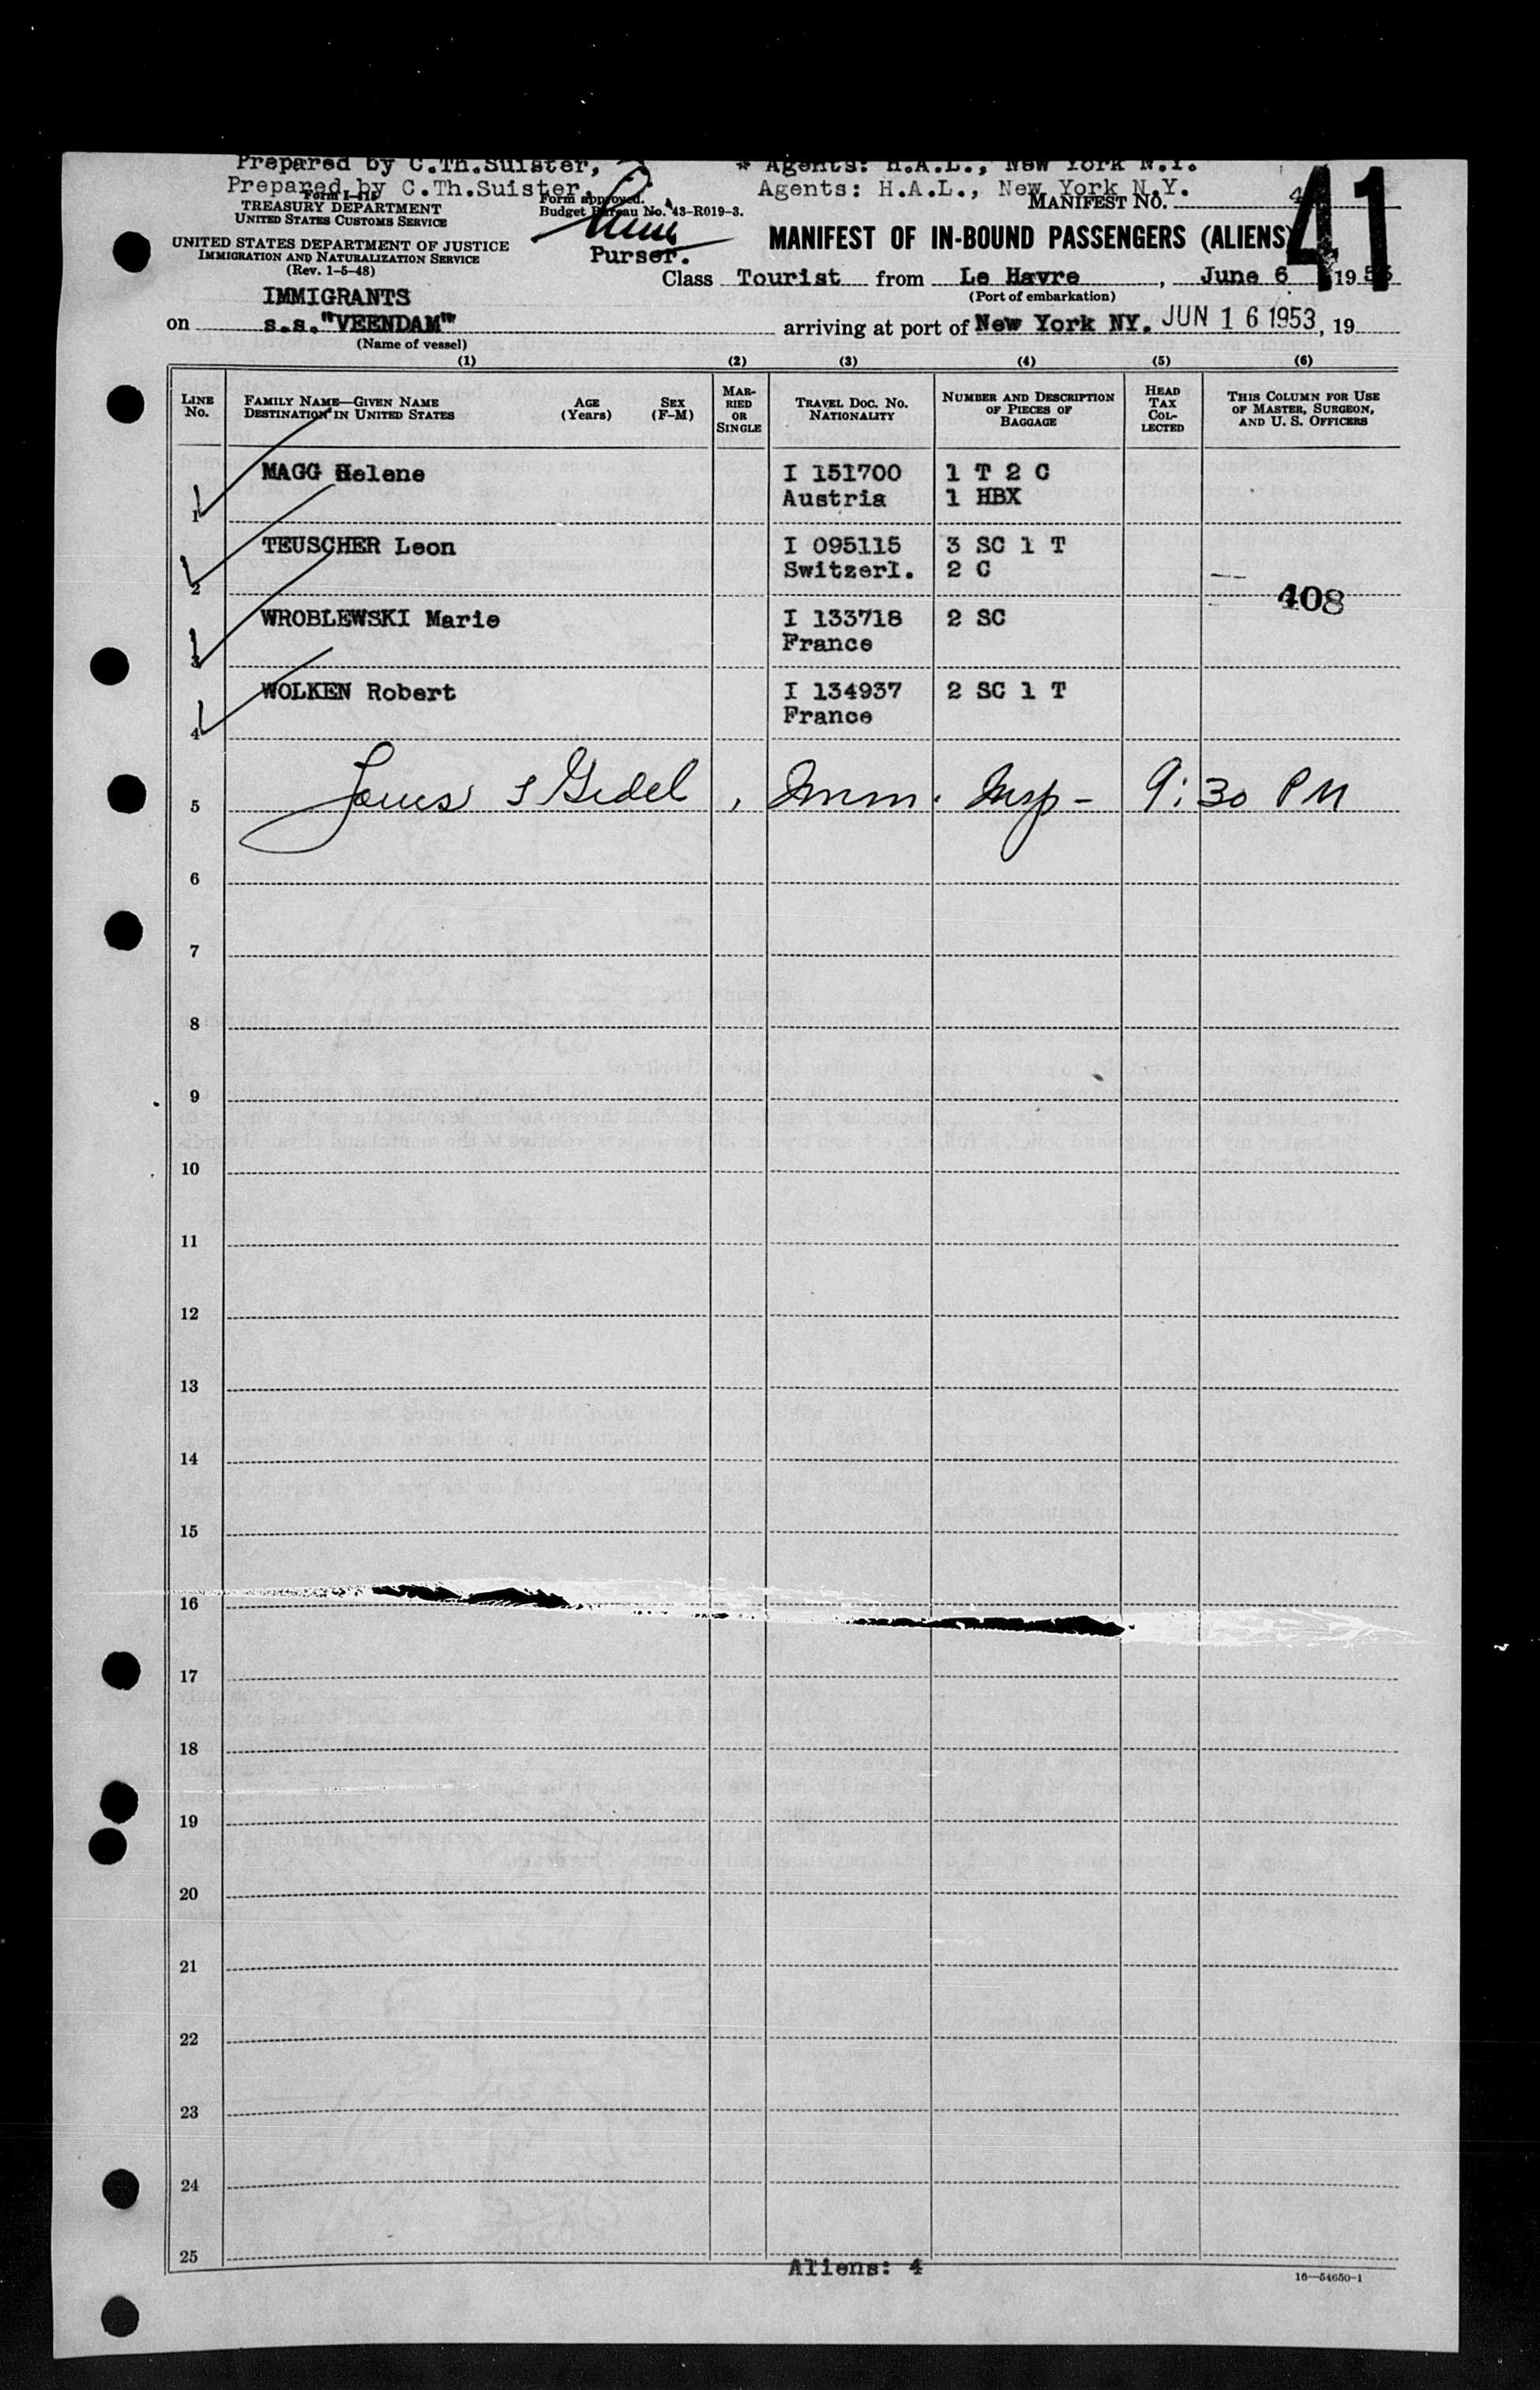 Prepared by C.Th.Suister, * Agents: H.A.L., New York N.Y.
Prepared by C.Th.Suister, Agents: H.A.L., New York N.Y.
Form I-418
TREASURY DEPARTMENT
UNITED STATES CUSTOMS SERVICE
UNITED STATES DEPARTMENT OF JUSTICE
IMMIGRATION AND NATURALIZATION SERVICE
(Rev. 1-5-48)
Form approved.
Budget Bureau No. 43-R019-3.
Purser.
MANIFEST NO. 4
41
MANIFEST OF IN-BOUND PASSENGERS (ALIENS)
Class Tourist from Le Havre, June 6 1953
(Port of embarkation)
IMMIGRANTS
on s.s. "VEENDAM" arriving at port of New York NY. JUN 16 1953, 19
(Name of vessel)
(1) (2) (3) (4) (5) (6)
LINE No. FAMILY NAME—GIVEN NAME DESTINATION IN UNITED STATES AGE (Years) SEX (F-M) MARRIED OR SINGLE TRAVEL DOC. NO. NATIONALITY NUMBER AND DESCRIPTION OF PIECES OF BAGGAGE HEAD TAX COLLECTED THIS COLUMN FOR USE OF MASTER, SURGEON, AND U. S. OFFICERS
MAGG Helene I 151700 1 T 2 C
1 Austria 1 HBX
TEUSCHER Leon I 095115 3 SC 1 T
2 Switzerl. 2 C
408
WROBLEWSKI Marie I 133718 2 SC
3 France
WOLKEN Robert I 134937 2 SC 1 T
4 France
5 Imm. Insp- 9:30 PM
6
7
8
9
10
11
12
13
14
15
16
17
18
19
20
21
22
23
24
25
Aliens: 4
16—54650-1